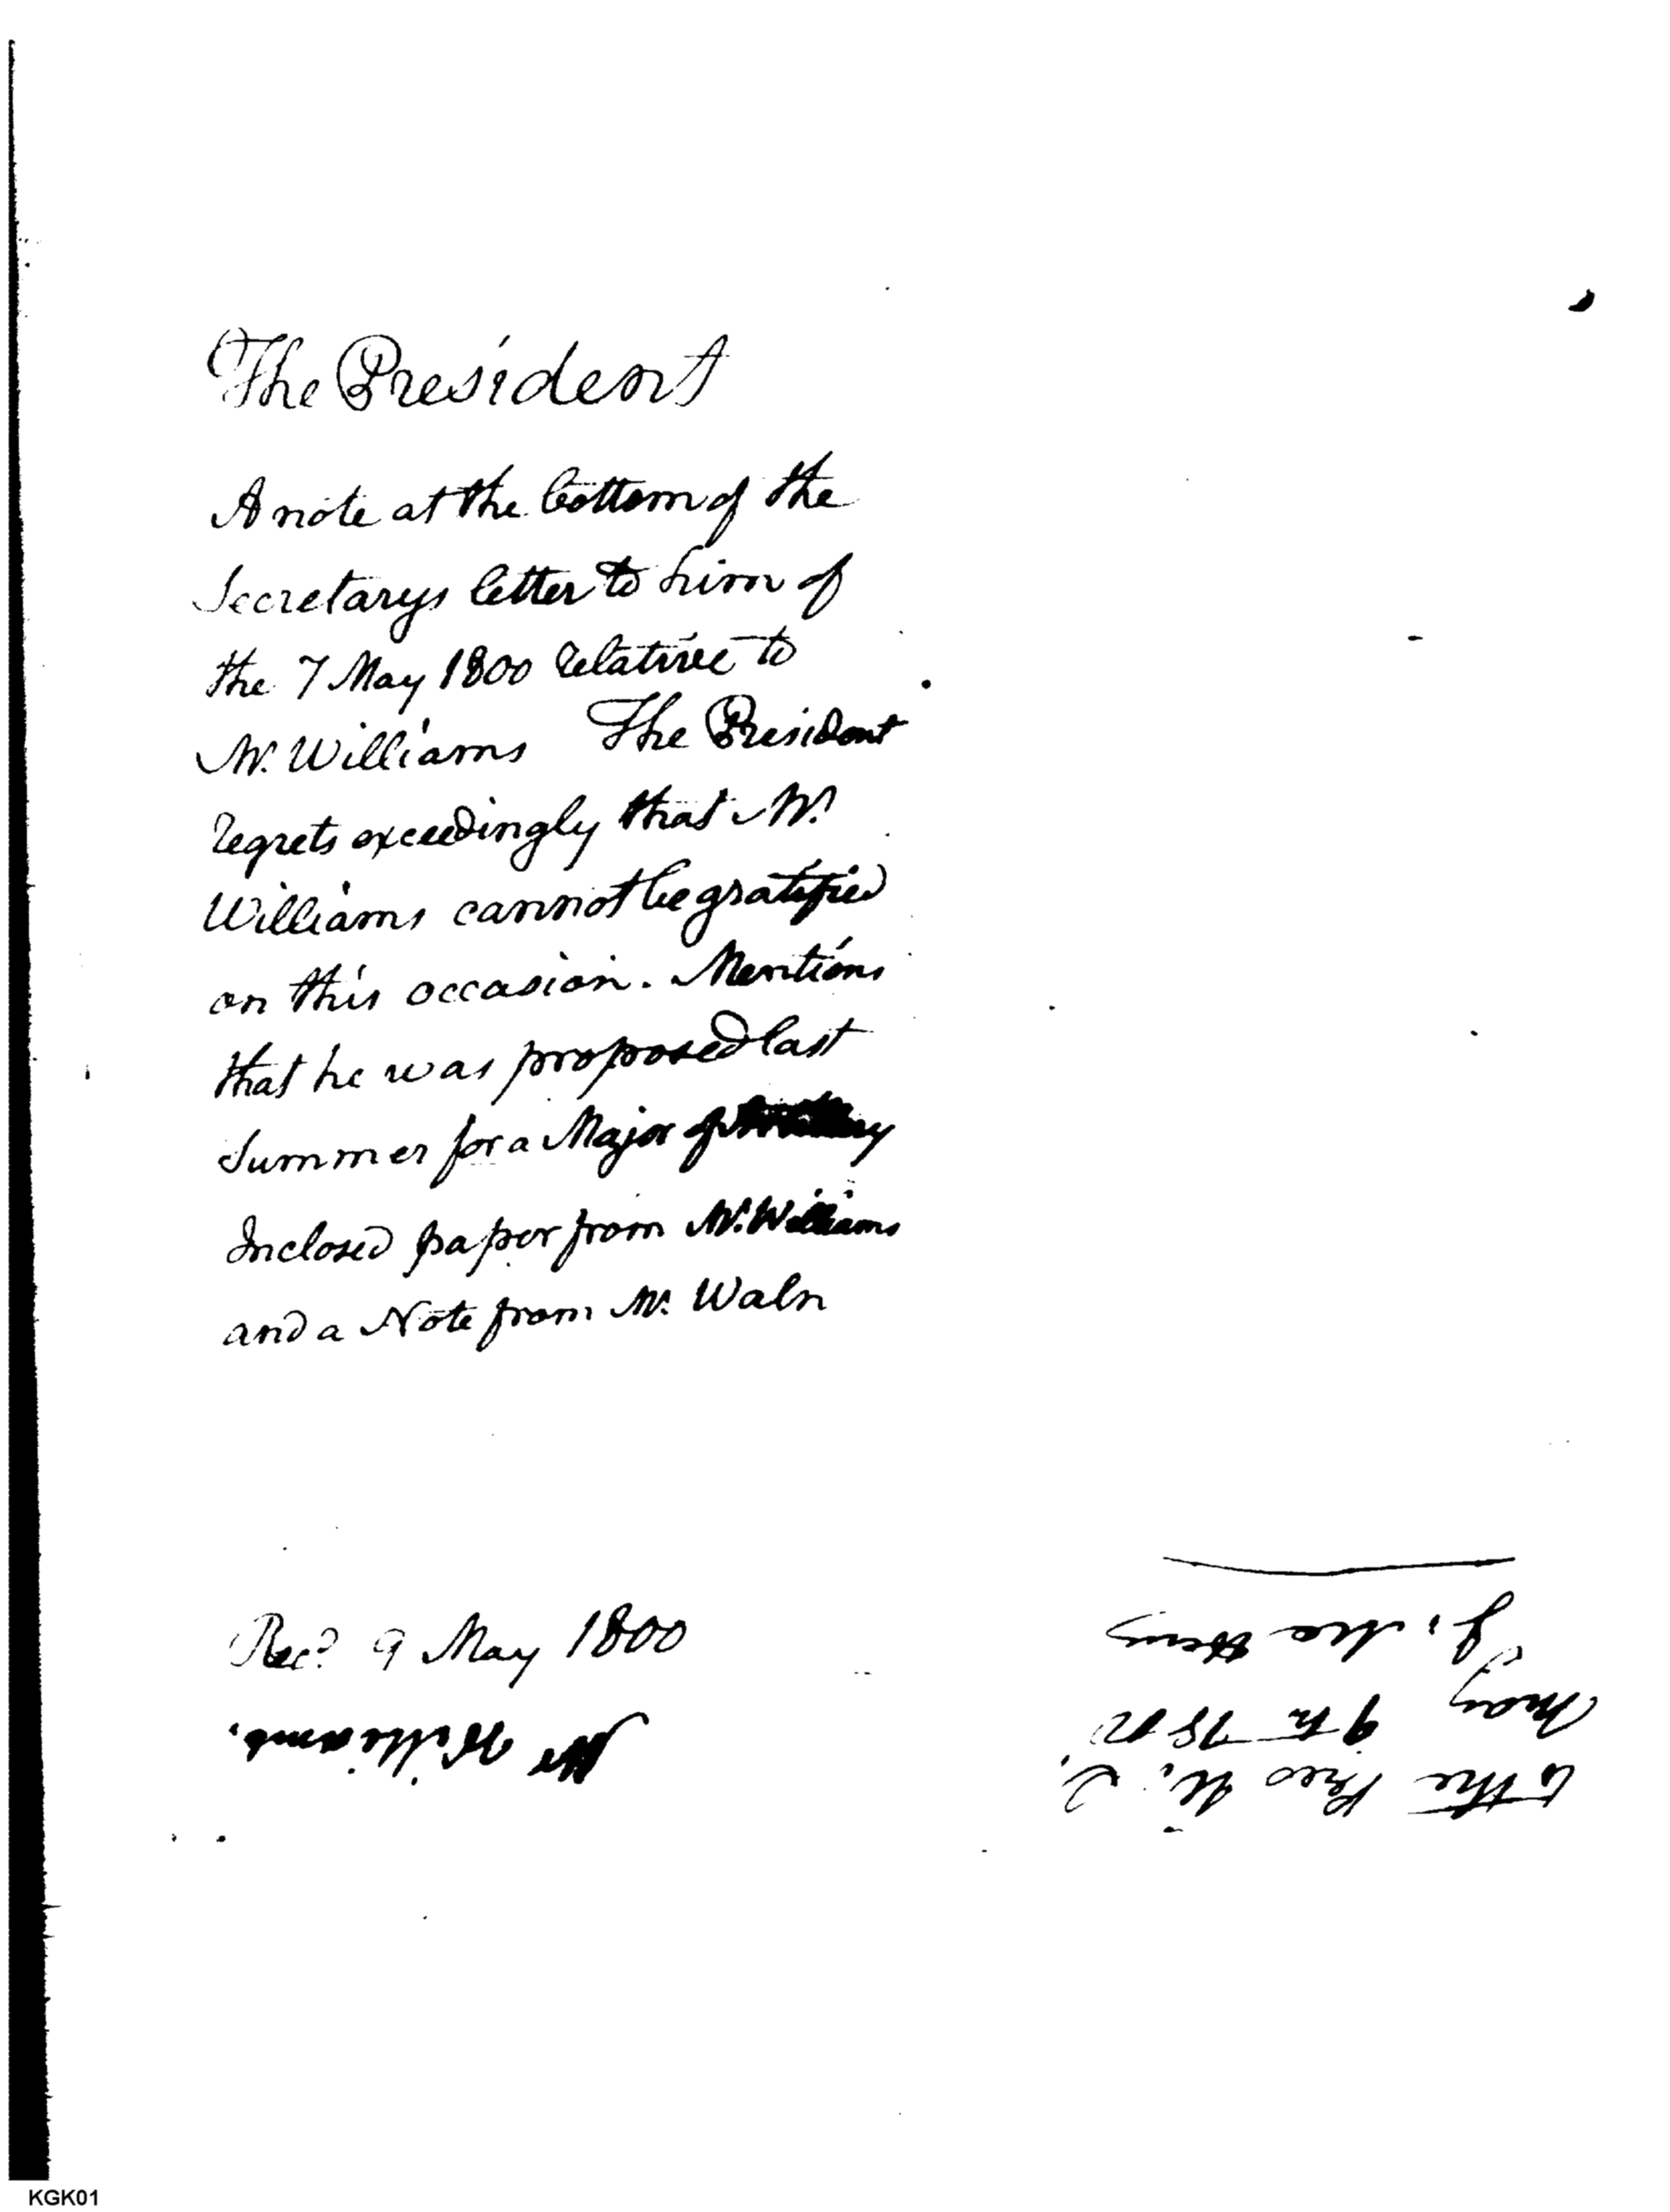 The President
A note at the bottom of the
Secretarys letter to him of
the 7 May 1800 relative to
Mr. Williams The President
regrets exceedingly that Mr.
Williams cannot be gratified
on this occasion. Mentions
that he was proposed last
Summer for a Major
Inclosed paper from Mr. Williams
and a Note from Mr. Waln
Recd. 9 May 1800
Mr Williams.
to the
May 9th
J. McHenry
KGK01